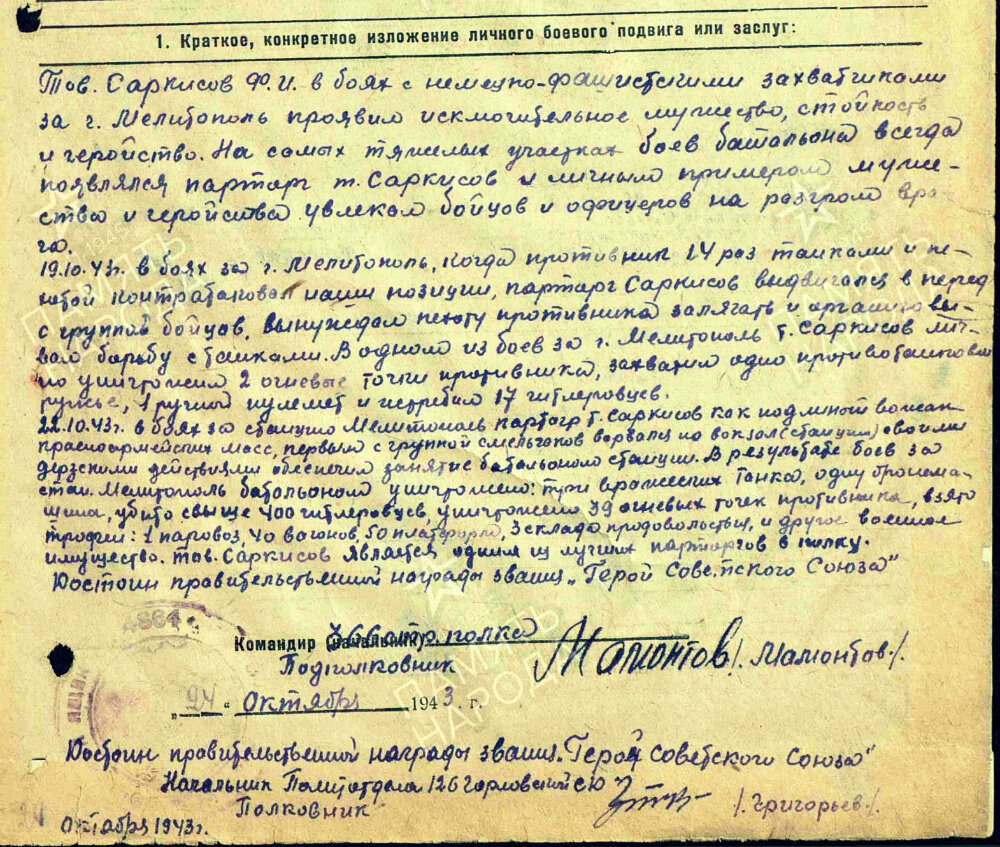 1. Краткое, конкретное изложение личного боевого подвига или заслуг:
Тов. Саркисов Ф.И. в боях с немецко-фашистскими захватчиками
за г. Мелитополь проявил исключительное мужество, стойкость
и геройство. На самых тяжелых участках боев батальона всегда
появлялся парторг т. Саркисов и личным примером муже-
ства и геройства увлекал бойцов и офицеров на разгром вра-
га.
19.10.43г. в боях за г. Мелитополь, когда противник 14 раз танками и пе-
хотой контратаковал наши позиции, парторг Саркисов выдвигался в перед
с группой бойцов, вынуждал пехоту противника залягать и организовы-
вал борьбу с танками. В одном из боев за г. Мелитополь т. Саркисов лич-
но уничтожил 2 огневые точки противника, захватил одно противотанковое
ружье, 1 ручной пулемет и истребил 17 гитлеровцев.
22.10.43г. в боях за станцию Мелитополь парторг т. Саркисов как подлинный вожак
красноармейских масс, первым с группой смельчаков ворвался на вокзал (станции) своими
дерзскими действиями обеспечил занятие батальоном станции. В результате боев за
стан. Мелитополь батальоном уничтожено: три вражеских танка, одну бронема-
шина, убито свыше 400 гитлеровцев, уничтожено 39 огневых точек противника, взято
трофеи: 1 паровоз, 40 вагонов, 50 платформ, 3 склада продовольствия, и другое военное
имущество. тов. Саркисов является одним из лучших парторгов в полку.
Достоин правительственной награды звания „Герой Советского Союза"
4864
Командир (начальник) 366 стр. полка
Подполковник Мамонтов /. Мамонтов./.
„24" октября 1943. г.
Достоин правительственной награды звания „Герой Советского Союза"
Начальник Политотдела 126 Горловской СД
Полковник /. Григорьев./.
октября 1943г.
ПАМЯТЬ
НАРОДА